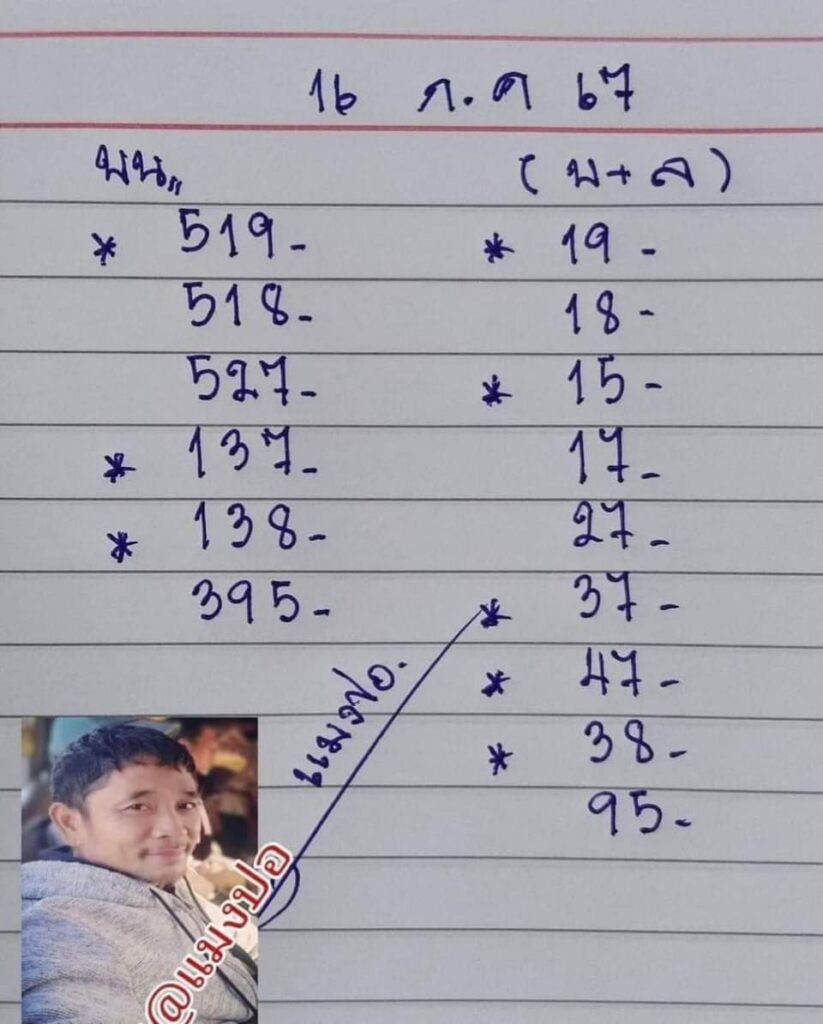 16 ก.ค 67
บน,,
(บ+ล)
* 519-
518-
527-
* 137-
* 138-
395-
* 19-
18-
* 15-
17-
27-
* 37-
* 47-
* 38-
95-
แมงปอ.
@แมงปอ